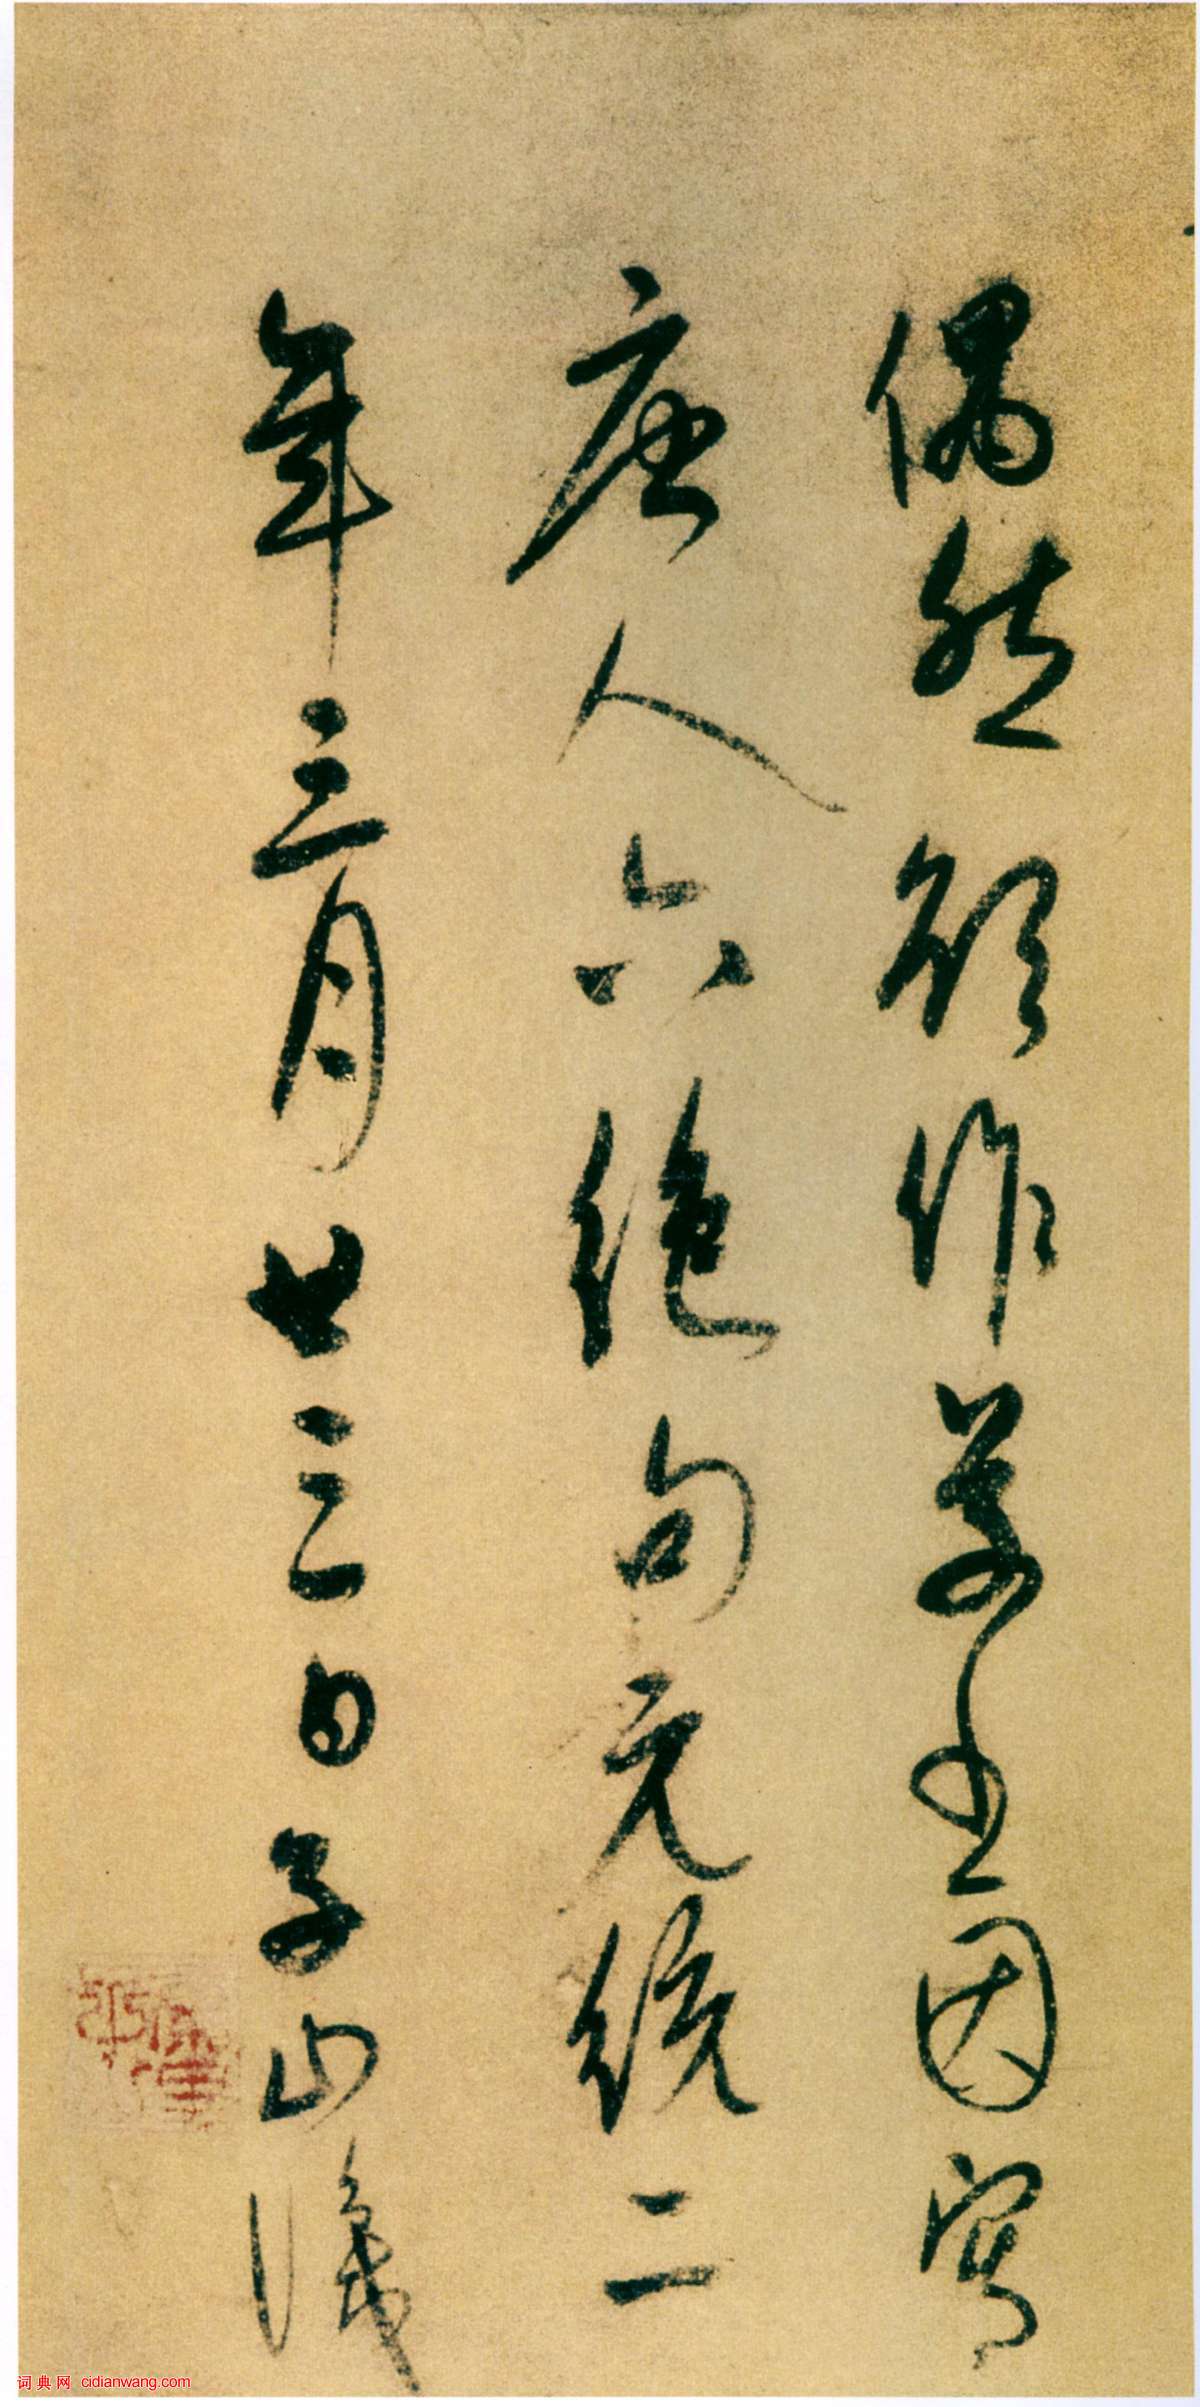 偶然欲作草書因寫
唐人六絕句元統二
年三月廿三日子山識
词典网 cidianwang.com